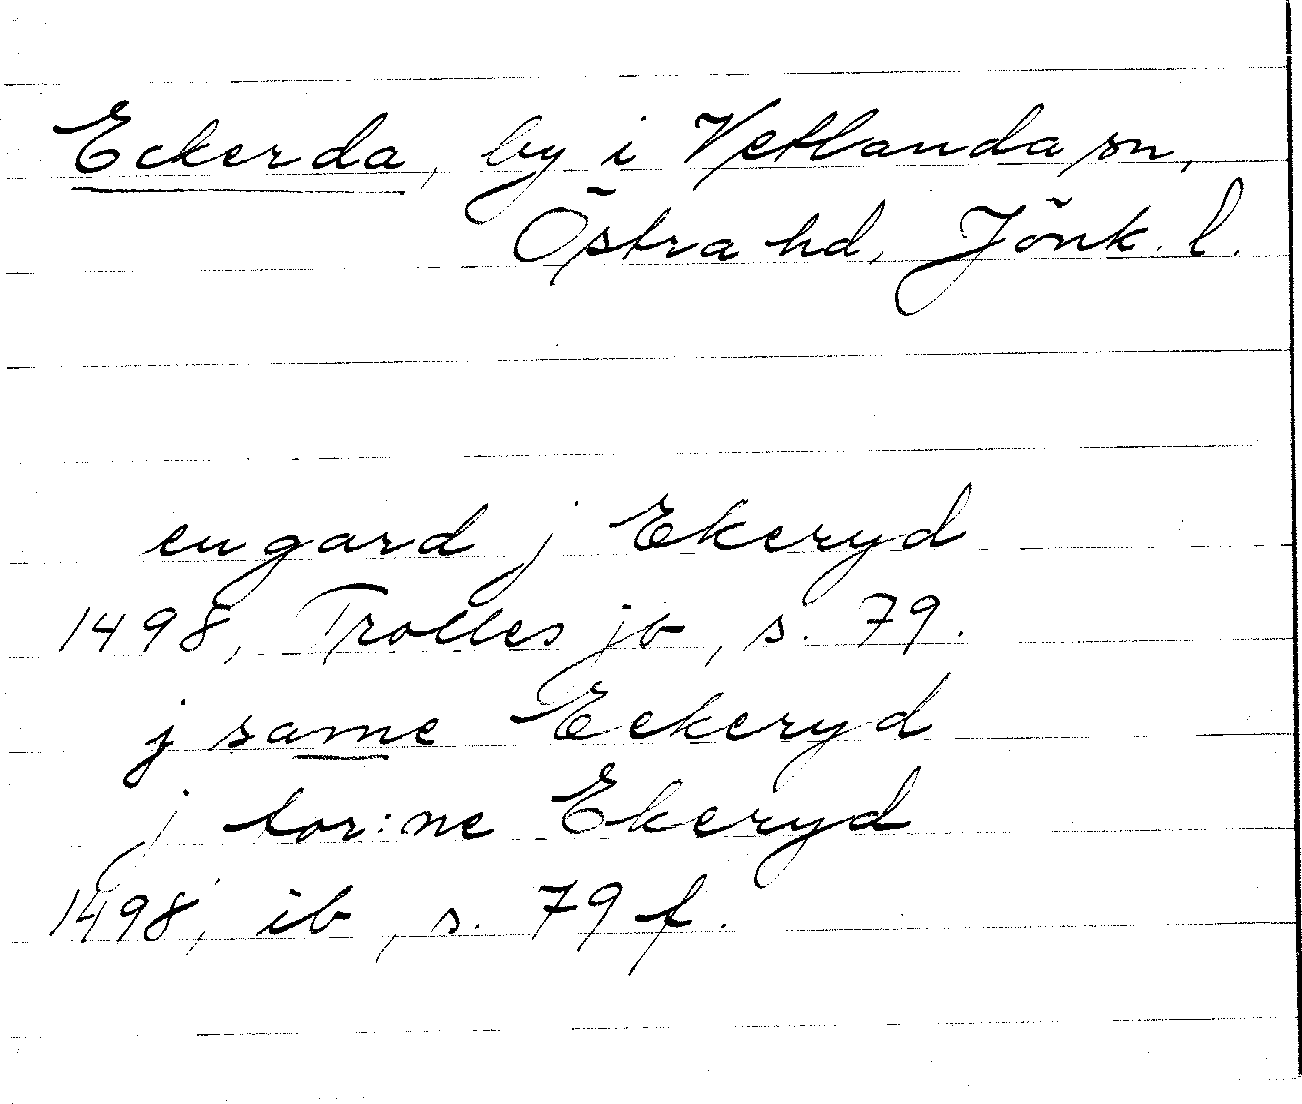 Eckerda, by i Vetlanda sn,
Östra hd, Jönk. l.
en gard j Ekeryd
1498, Trolles jb, s. 79.
j same Eckeryd
j for:ne Ekeryd
1498, ib, s. 79 f.